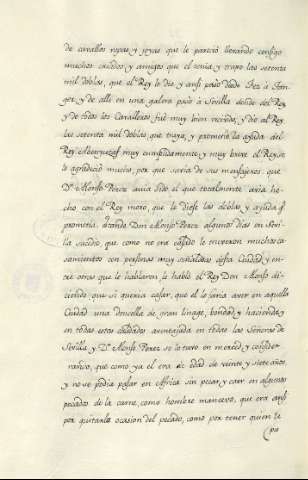 de cavallos ropas y joyas que le pareció llevando consigo
muchos criados y amigos que el tenia y trajo las setenta
mil doblas, que el Rey le dio y ansi paso desde Fez a Tan-
ger y de alli en una galera paso a Sevilla donde del Rey
y de todos los Cavalleros fue muy bien recivido, y dio al Rey
las setenta mil doblas, que traya, y prometio la ayuda del
Rey Abenyuzaf muy cumplidamente, y muy breve el Rey se
lo agradeció mucho, por que savia de sus mensajeros que
Dn. Alonso Perez avia sido el que totalmente avia he-
cho con el Rey moro, que le diese las doblas y ayuda que
prometia. Estando Don Alonso Perez algunos dias en Sevi-
lla sucedio, que como no era casado le movieron muchos ca-
samientos con personas muy señaladas desta Ciudad, y en-
tre otros que le hablaron le habló el Rey Don Alonso di-
ciendo que si queria casar, que el le haria aver en aquella
Ciudad una doncella de gran linage, bondad, y hacienda, y
en todas estas calidades aventajada en todas las Señoras de
Sevilla, y Dn. Alonso Perez se lo tuvo en merced, y conside-
rando, que como ya el era de edad de veinte y siete años,
y no se podia pasar en Africa sin pecar, y caer en algunos
pecados de la carne, como hombre mancevo, que era ansi
por quitar la ocasion del pecado, como por tener quien le